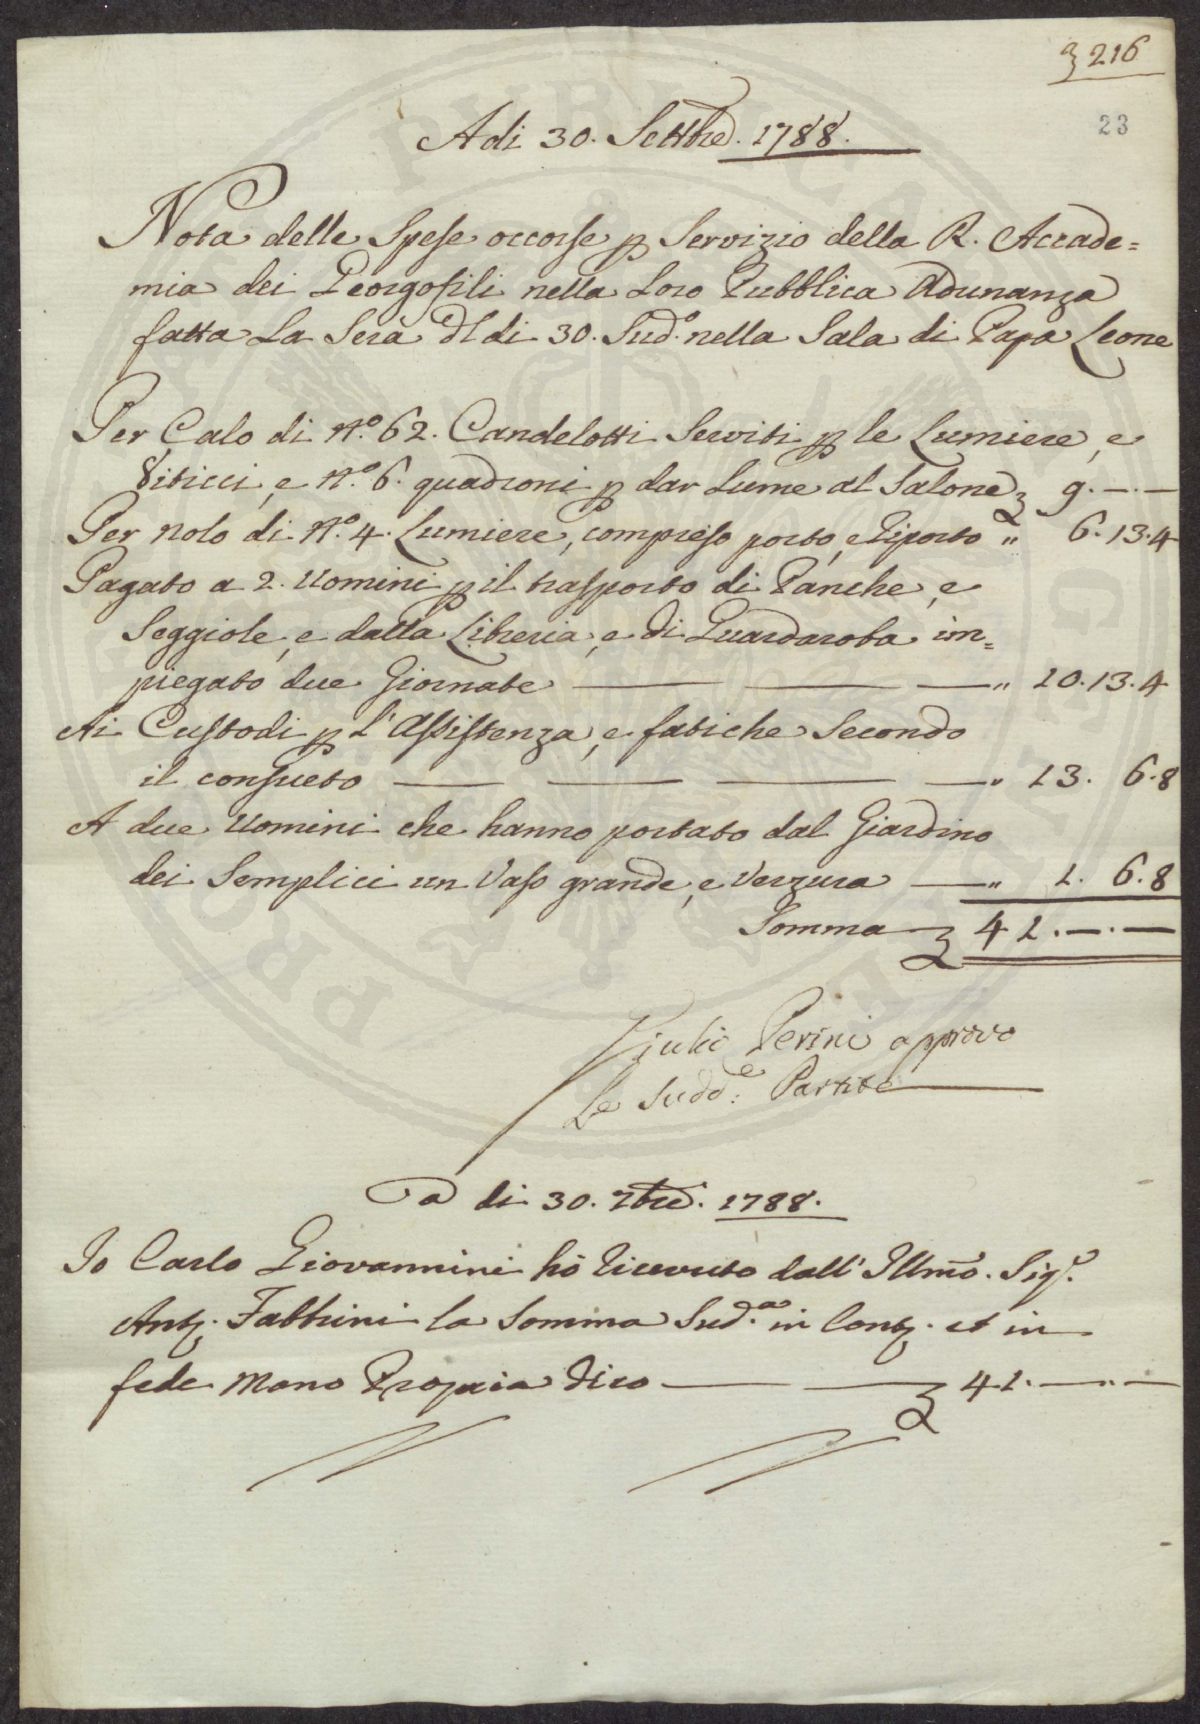 216
23
Adi 30. Settbre. 1788.
Nota delle Spese occorse p Servizio della R. Accade=
mia dei Georgofili nella Loro Pubblica Adunanza
fatta La Sera dl di 30. Sudo. nella Sala di Papa Leone
Per Calo di No. 62. Candelotti Serviti p le Lumiere, e
Viticci, e No. 6. quadroni p dar Lume al Salone £ 9.—.—
Per nolo di No. 4. Lumiere, compreso porto, e Riporto " 6.13.4
Pagato a 2. Uomini p il trasporto di Panche, e
Seggiole, e dalla Libreria, e di Guardaroba im=
piegato due Giornate — — — " 10.13.4
Ai Custodi p l'Assistenza, e fatiche Secondo
il consueto — — — — " 13. 6.8
A due Uomini che hanno portato dal Giardino
dei Semplici un Vaso grande, e Verzura — " 1. 6.8
Somma £ 41.—.—
Giulio Perini approvo
Le Sudde: Partite
A di 30. 7bre. 1788.
Io Carlo Giovannini hò Ricevuto dall' Illmo. Sigr.
Anto. Fabbrini la Somma Suda. in Conti. et in
fede Mano Propria Dico — — £ 41.—.—
PUBLICA